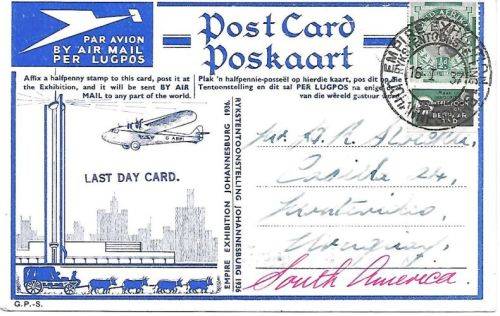 PAR AVION
BY AIR MAIL
PER LUGPOS
Post Card
Poskaart
Affix a halfpenny stamp to this card, post it at
the Exhibition, and it will be sent BY AIR
MAIL to any part of the world.
Plak 'n halfpennie-posseël op hierdie kaart, pos dit op die
Tentoonstelling en dit sal PER LUGPOS na enige
van die wêreld gestuur
LAST DAY CARD.
EMPIRE EXHIBITION JOHANNESBURG 1936.
RYKSTENTOONSTELLING JOHANNESBURG 1936
EMPIRE EXHIBITION
Casilla 24,
Montevideo,
Uruguay,
South America.
G.P.-S.